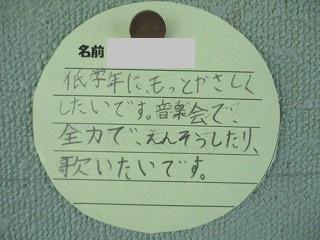 名前
低学年に、もっとやさしく
したいです。音楽会で、
全力で、えんそうしたり、
歌いたいです。